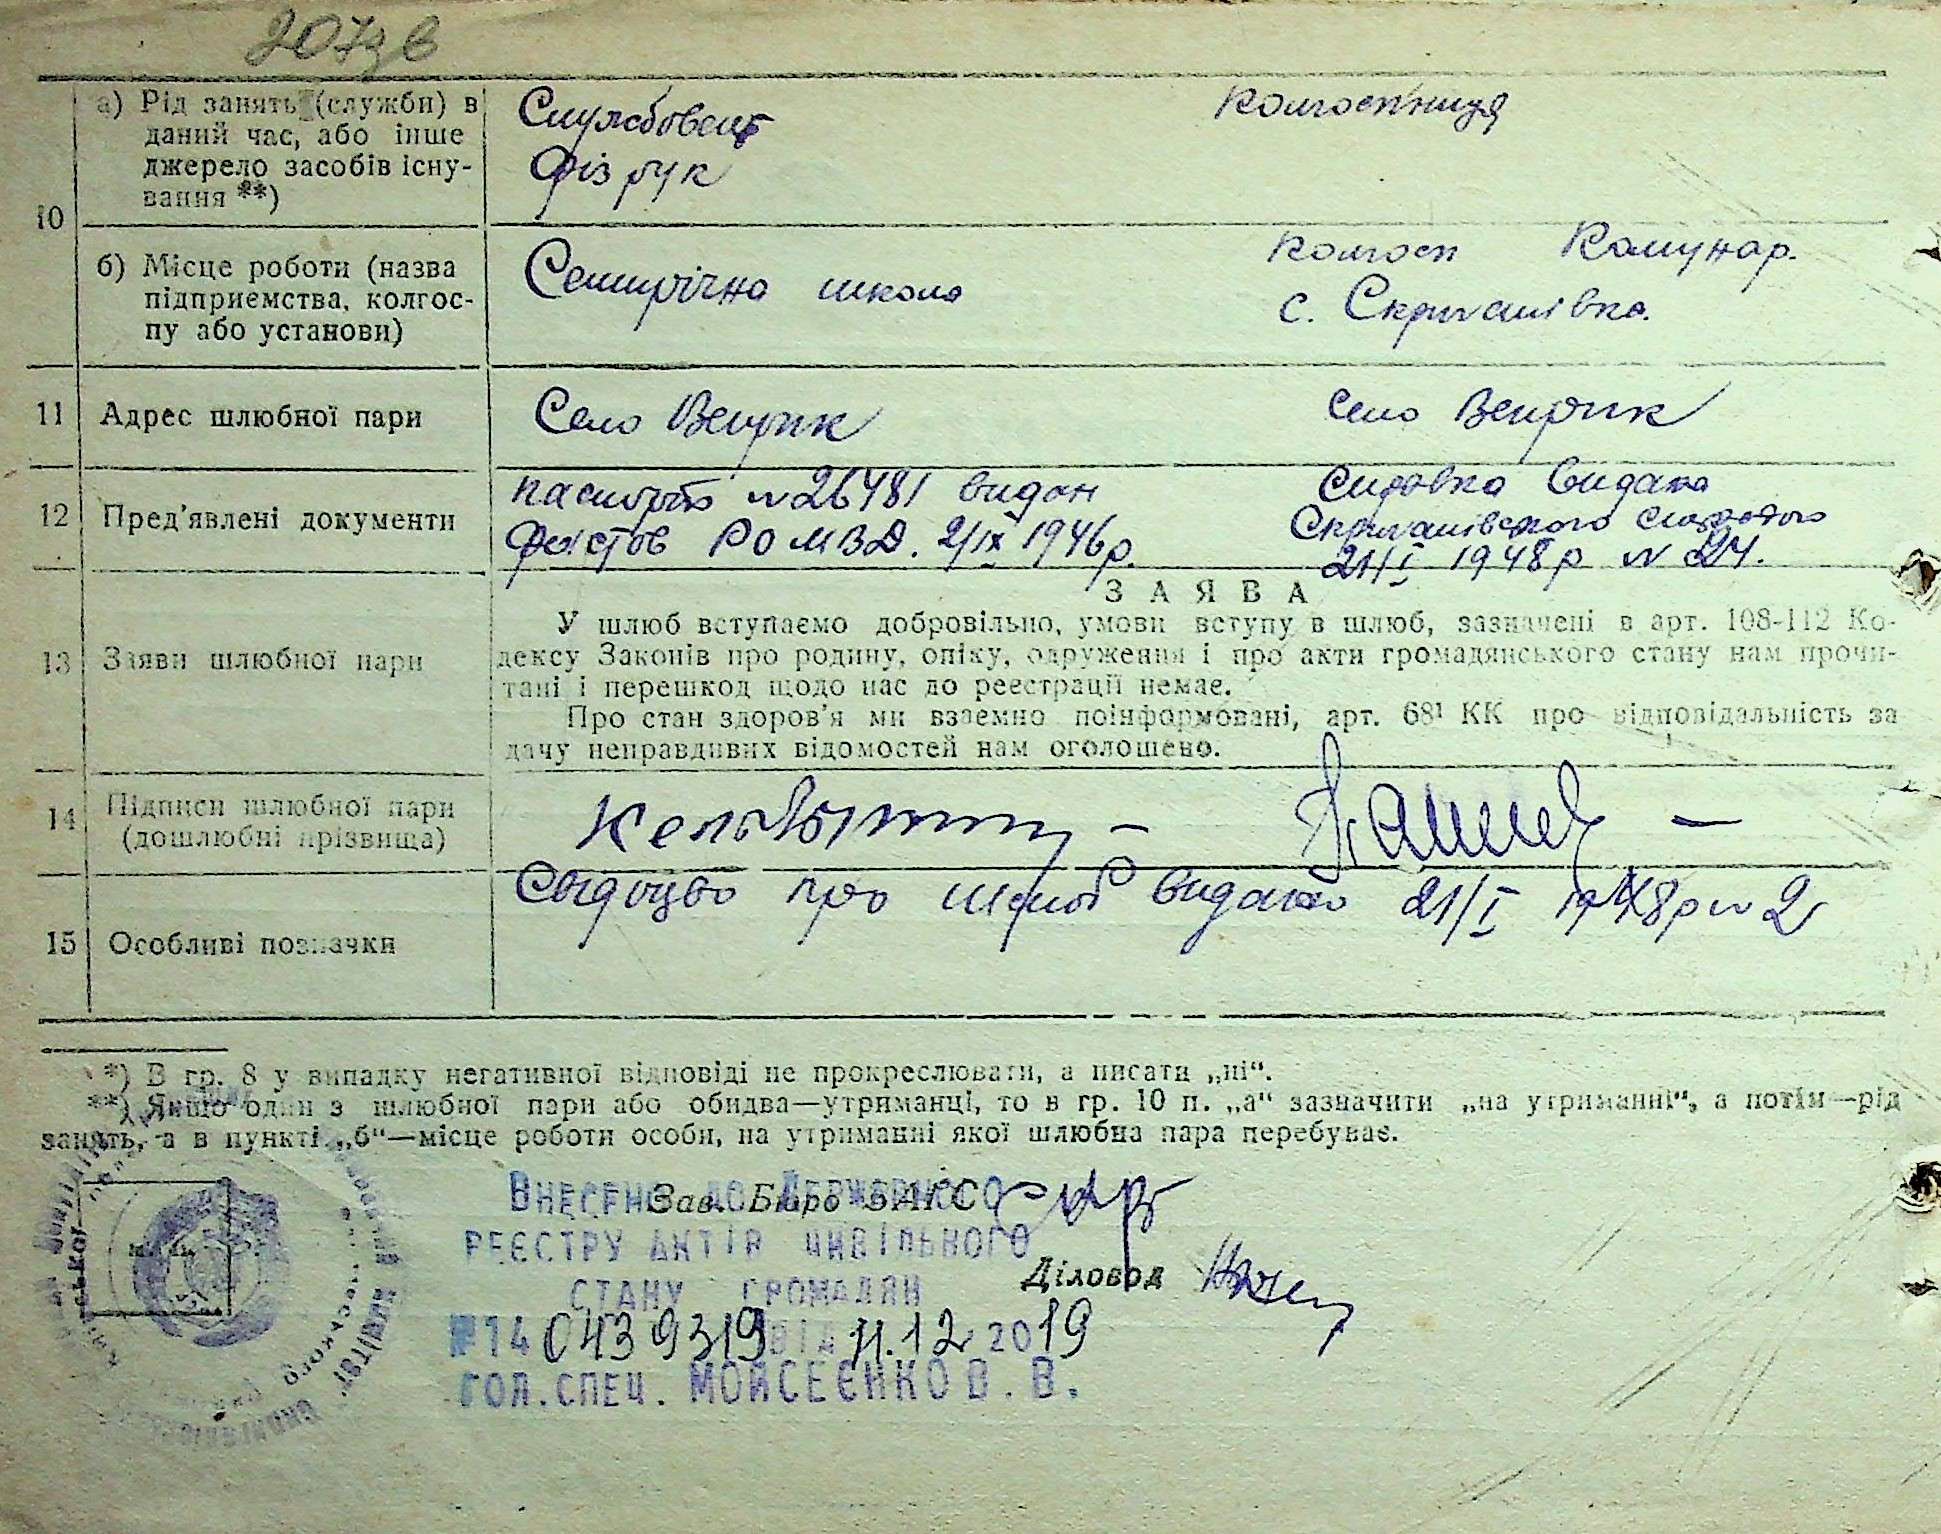 207зв
а) Рід занять (служби) в
даний час, або інше
джерело засобів існу-
вання **)
Службовець
Фізрук
Колгоспниця
10
б) Місце роботи (назва
підприємства, колгос-
пу або установи)
Семирічна школа
Колгосп Комунар.
с. Скригалівка.
11 Адрес шлюбної пари
Село Веприк
село Веприк
12 Пред'явлені документи
паспорт № 26481 видан
Фастов РО МВД. 2/IX 1946 р.
Справка видана
21/I 1948 р № 24.
13 Заяви шлюбної пари
ЗАЯВА
У шлюб вступаємо добровільно, умови вступу в шлюб, зазначені в арт. 108-112 Ко-
дексу Законів про родину, опіку, одруження і про акти громадянського стану нам прочи-
тані і перешкод щодо нас до реєстрації немає.
Про стан здоров'я ми взаємно поінформовані, арт. 68¹ КК про відповідальність за
дачу неправдивих відомостей нам оголошено.
14 Підписи шлюбної пари
(дошлюбні прізвища)
15 Особливі позначки
Свідоцво про шлюб видано 21/I 1948 р № 2
*) В гр. 8 у випадку негативної відповіді не прокреслювати, а писати „ні“.
**) Якщо один з шлюбної пари або обидва—утриманці, то в гр. 10 п. „а“ зазначити „на утриманні“, а потім—рід
занять, а в пункті „б“—місце роботи особи, на утриманні якої шлюбна пара перебуває.
Зав. Бюро ЗАГС
Внесено до Державного
реєстру актів цивільного
стану громадян
Діловод
№14 0439319 від 11.12 2019
гол. спец. Мойсеєнко В. В.